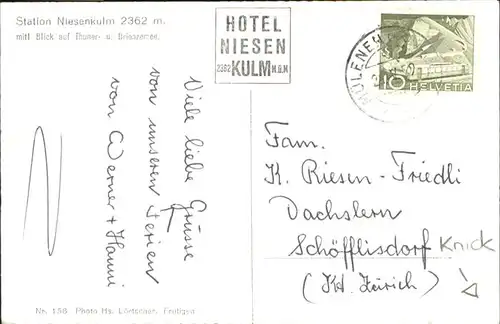 Station Niesenkulm 2362 m.
mit Blick auf Thuner- u. Brienzersee.
HOTEL
NIESEN
2362 KULM M.ü.M
MÜLENEN
10
HELVETIA
Viele liebe Grüsse
von unseren Ferien
von Werner + Hanni
Fam.
K. Riesen-Friedli
Dachslern
Schöfflisdorf
(Kt. Zürich)
Knick
Nr. 156 Photo Hs. Lörtscher, Frutigen